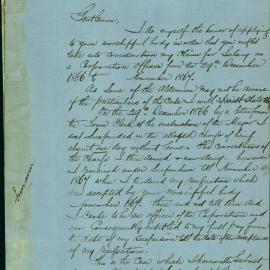 Gentlemen,
I do myself the honor of applying
to your worshipful body in order that you might
take into consideration my Claim for Salary as
a Corporation Officer from the 29th December
1866 to November 1867.
As Some of the Aldermen may not be aware
of the particulars of the Case I will
On the 29th December 1866 by a letter from
the Town Clerk at the instruction of the Mayor I
was Suspended on the alleged charge of being
absent one day without leave. The correctness of
the Charge I then denied & now deny. however
I remained under Suspension till November
1867 when I tendered my resignation which
was accepted by your worshipful body
November 1867 then and not till then did
I Cease to be an officer of the Corporation and
am Consequently entitled to my full pay from
the date of my Suspension till the date of the acceptance of
my resignation.
This is the Case which I